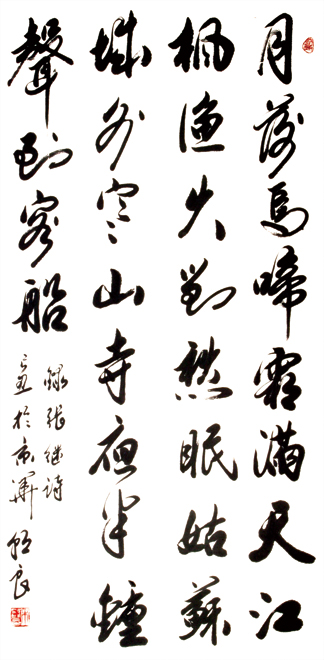 月落烏啼霜滿天江
楓漁火對愁眠姑蘇
城外寒山寺夜半鐘
聲到客船
錄張继詩
丑於京華 良